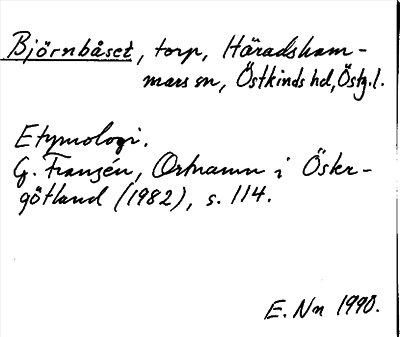 Björnbåset, torp, Häradsham-
mars sn, Östkinds hd, Östg.l.
Etymologi.
G. Franzén, Ortnamn i Öster-
götland (1982), s. 114.
E. Nn 1990.